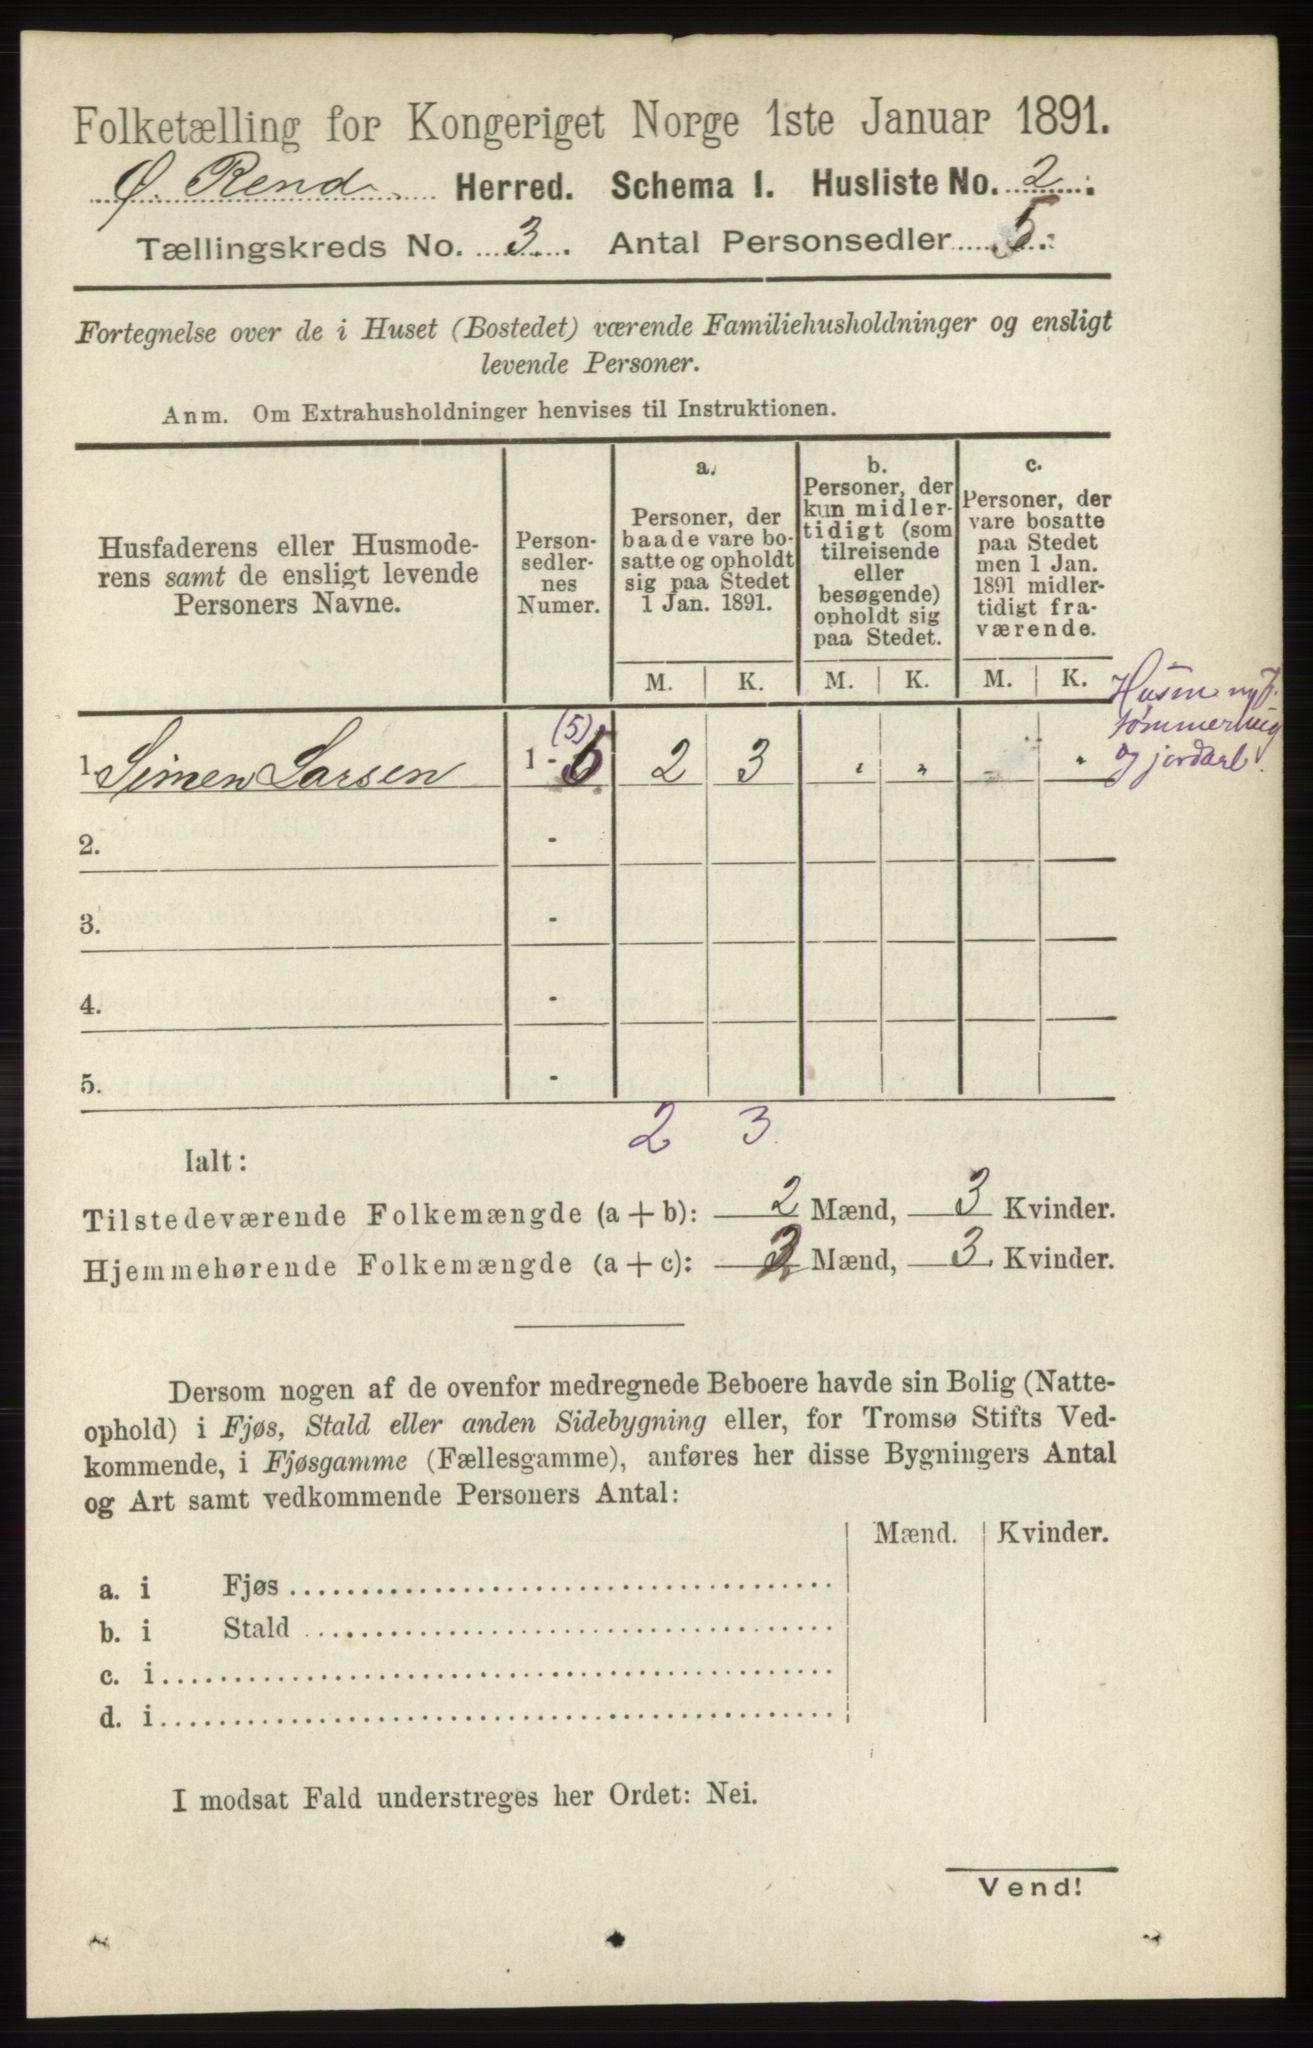 Folketælling for Kongeriget Norge 1ste Januar 1891.
Ø. Rend. Herred. Schema 1. Husliste No. 2.
Tællingskreds No. 3. Antal Personsedler 5.
Fortegnelse over de i Huset (Bostedet) værende Familiehusholdninger og ensligt
levende Personer.
Anm. Om Extrahusholdninger henvises til Instruktionen.
Husfaderens eller Husmode-
rens samt de ensligt levende
Personers Navne.
Person-
sedler-
nes
Numer.
a.
Personer, der
baade vare bo-
satte og opholdt
sig paa Stedet
1 Jan. 1891.
b.
Personer, der
kun midler-
tidigt (som
tilreisende
eller
besøgende)
opholdt sig
paa Stedet.
c.
Personer, der
vare bosatte
paa Stedet
men 1 Jan.
1891 midler-
tidigt fra-
værende.
M. K. M. K. M. K.
Husm. m. J.
tømmerhug
og jordarb.
(5)
1. Simen Larsen 1 - 5 2 3 " " "
2. -
3. -
4. -
5. -
2 3
Ialt:
Tilstedeværende Folkemængde (a + b): 2 Mænd, 3 Kvinder.
Hjemmehørende Folkemængde (a + c): 2 Mænd, 3 Kvinder.
Dersom nogen af de ovenfor medregnede Beboere havde sin Bolig (Natte-
ophold) i Fjøs, Stald eller anden Sidebygning eller, for Tromsø Stifts Ved-
kommende, i Fjøsgamme (Fællesgamme), anføres her disse Bygningers Antal
og Art samt vedkommende Personers Antal:
Mænd. Kvinder.
a. i Fjøs
b. i Stald
c. i
d. i
I modsat Fald understreges her Ordet: Nei.
Vend!